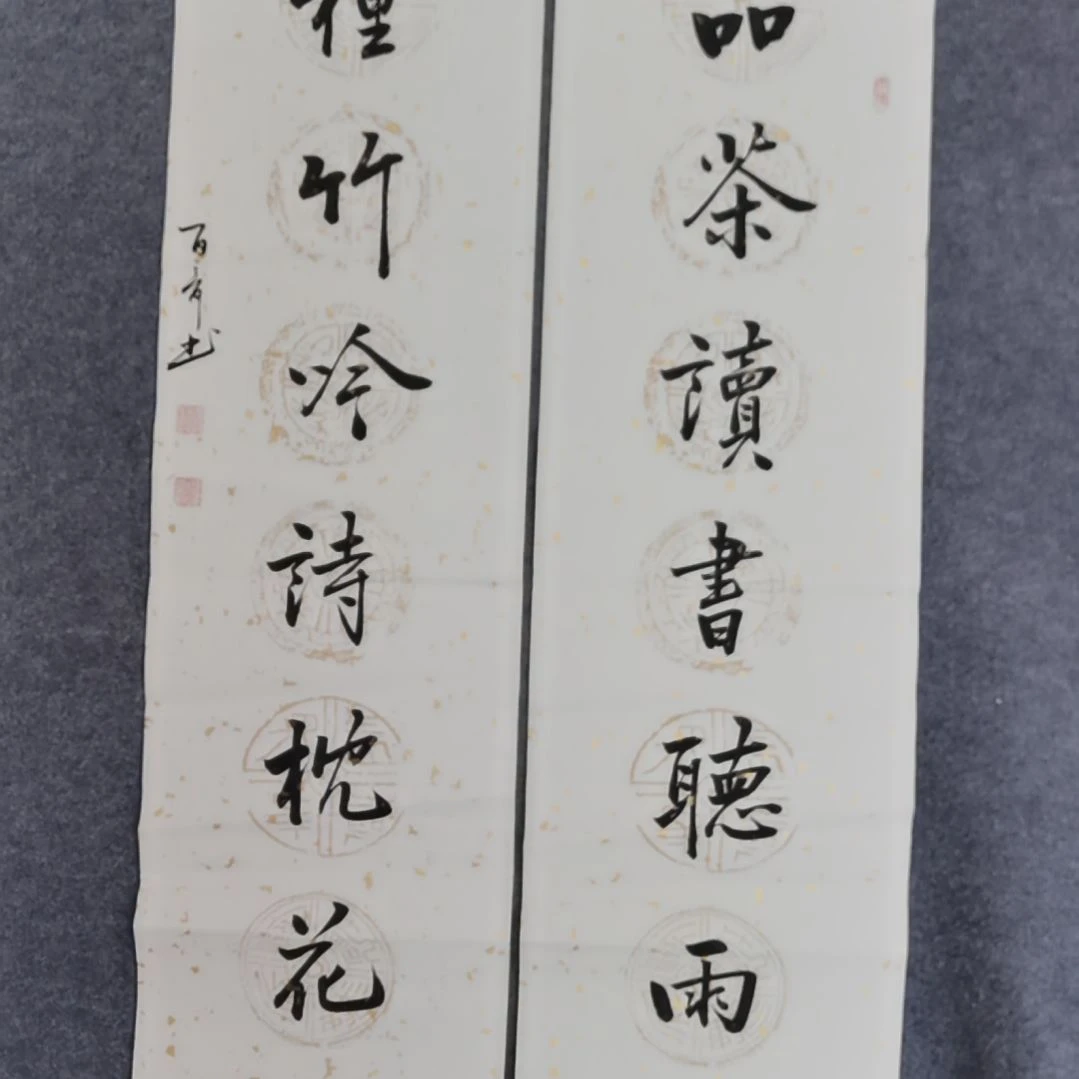 品茶讀書聽雨
種竹吟詩枕花
百育书